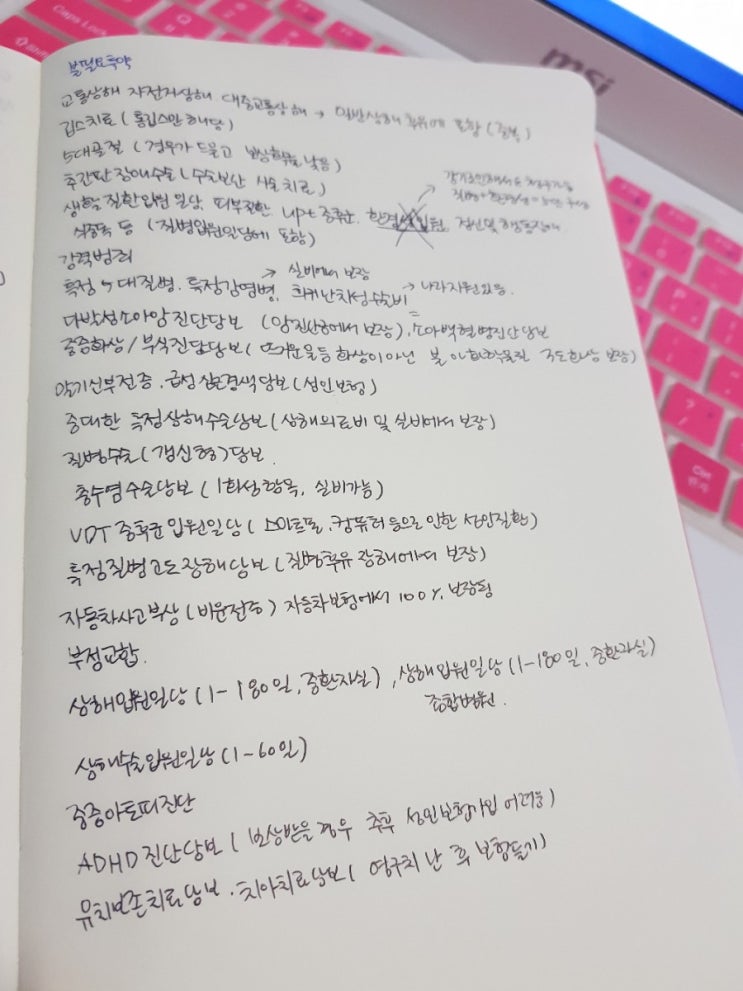 불필요특약
교통상해 자전거상해 대중교통상해 → 일반상해 후유에 포함 (중복)
깁스치료 (통깁스만 해당)
5대골절 (경우가 드물고 보상확률 낮음)
추간판장애수술 (수술보단 시술치료)
생활질환입원일당, 피부질환, VDT 증후군, 환경성질환, 정신및행동장애
식중독 등 (질병입원일당에 포함)
강력범죄
특정 5대질병, 특정감염병, 희귀난치성수술비 → 나라지원있음.
→ 실비에서 보장
다발성소아암진단담보 (암진단금에서 보장), 소아백혈병진단담보
중증화상/부식진단담보 (뜨거운물등 화상이 아닌 불이나 화학물질 고도화상 보장)
말기신부전증, 급성심근경색담보 (성인보험)
중대한 특정상해수술담보 (상해의료비 및 실비에서 보장)
질병수술 (갱신형) 담보.
충수염수술담보 (1회성항목, 실비가능)
VDT 증후군 입원일당 (스마트폰, 컴퓨터 등으로 인한 성인질환)
특정질병고도장해담보 (질병후유장해에서 보장)
자동차사고부상 (비운전중) 자동차보험에서 100% 보장됨
부정교합.
상해입원일당 (1-180일, 중환자실), 상해입원일당 (1-180일, 중환자실)
종합병원.
상해수술입원일당 (1-60일)
중증아토피진단
ADHD진단담보 (보상받을경우 추후 성인보험가입 어려움)
유치보존치료담보, 치아치료담보 (영구치 난 후 보험들기)
msi
Caps Lock
Shift
Ctrl